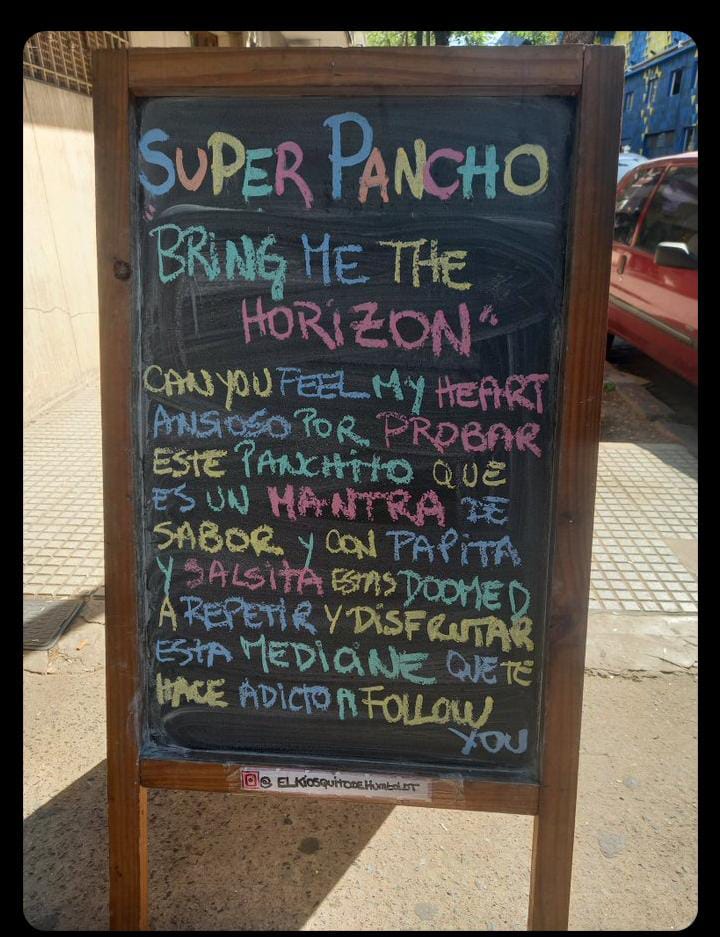 SUPER PANCHO
"BRING ME THE
HORIZON"
CAN YOU FEEL MY HEART
ANSIOSO POR PROBAR
ESTE PANCHITO QUE
ES UN MANTRA DE
SABOR Y CON PAPITA
Y SALSITA ESTAS DOOMED
A REPETIR Y DISFRUTAR
ESTA MEDICINE QUE TE
HACE ADICTO A FOLLOW
YOU
@ELKIOSQUITODEHUMBOLDT